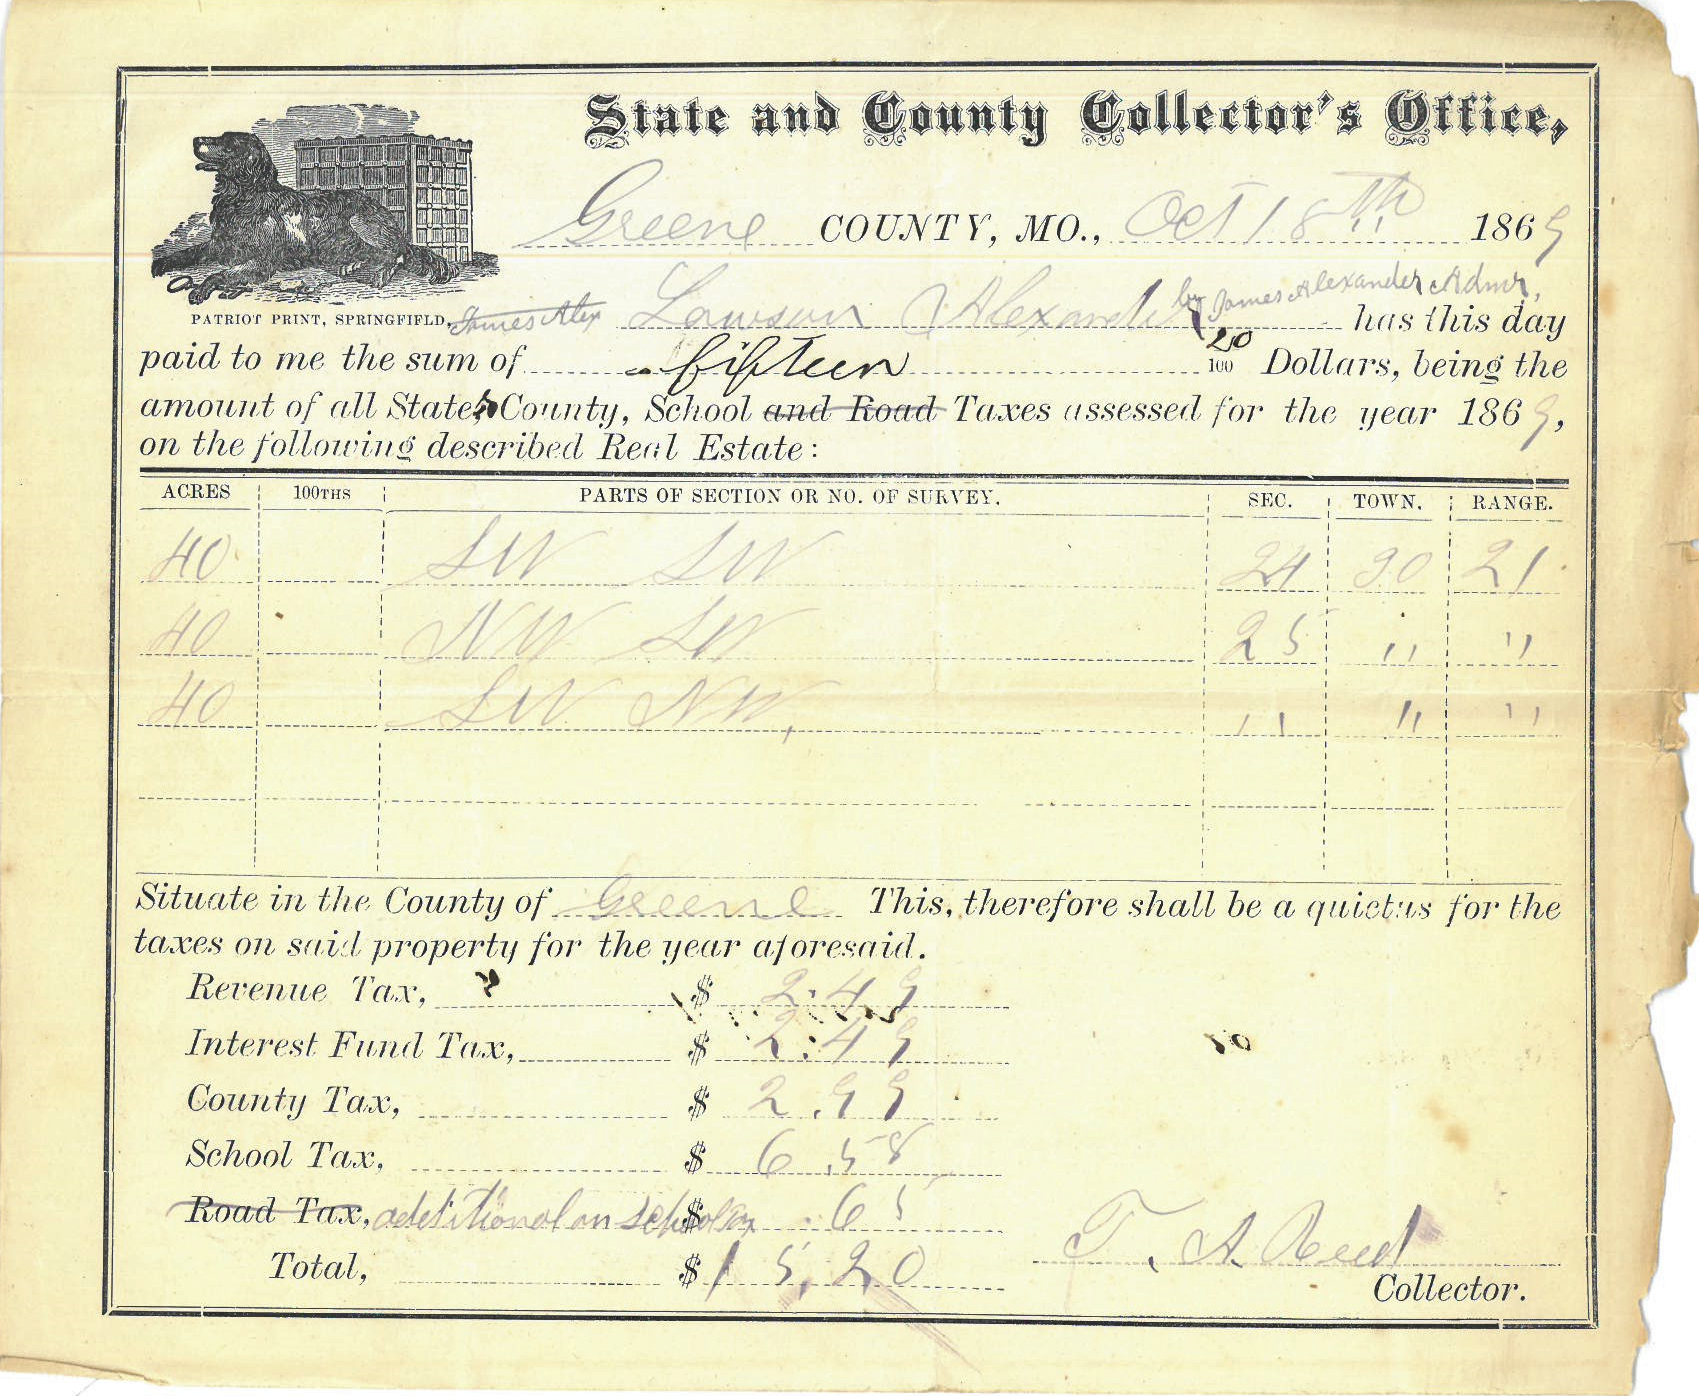 State and County Collector's Office,
Greene COUNTY, MO., Oct 18th 1869
PATRIOT PRINT, SPRINGFIELD, James Alex Lawson Alexander by James Alexander Admr, has this day
paid to me the sum of fifteen 20/100 Dollars, being the
amount of all State, & County, School and Road Taxes assessed for the year 1869,
on the following described Real Estate:
ACRES 100THS PARTS OF SECTION OR NO. OF SURVEY. SEC. TOWN. RANGE.
40 SW SW 24 30 21
40 NW SW 25 " "
40 SW NW, " " "
Situate in the County of Greene This, therefore shall be a quietus for the
taxes on said property for the year aforesaid.
Revenue Tax, $ 2.49
Interest Fund Tax, $ 2.49
County Tax, $ 2.99
School Tax, $ 6.58
Road Tax, additional on school $ .65
Total, $ 15,20
T. A. Reed
Collector.